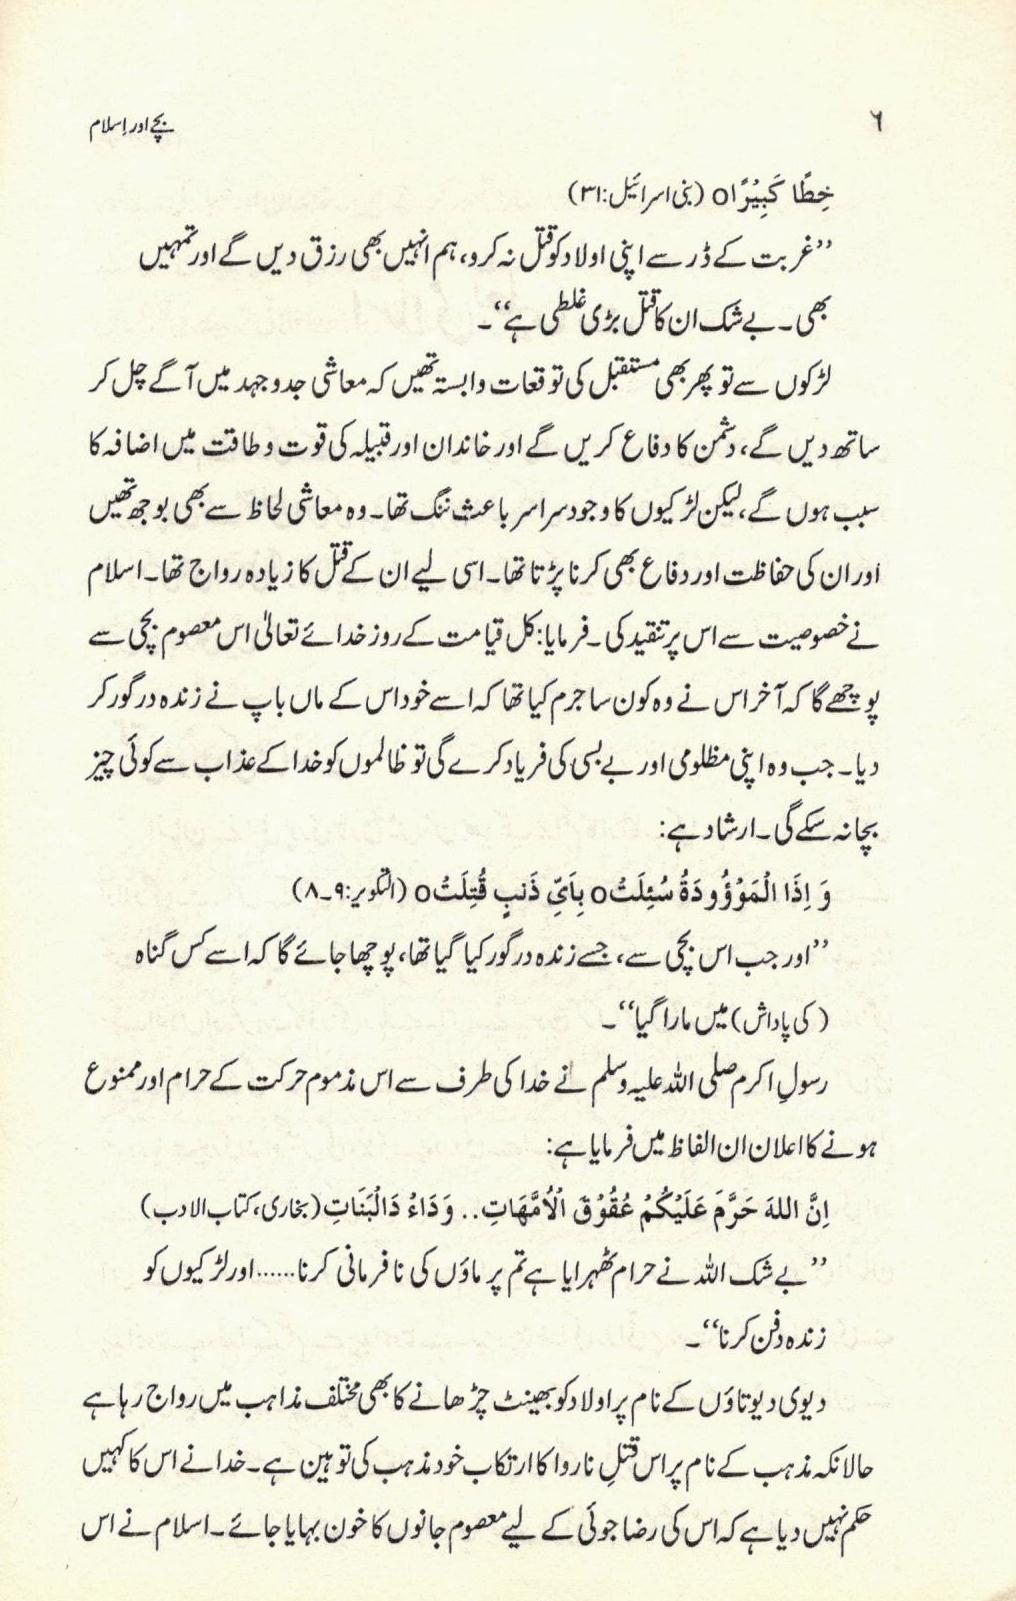 ۶
بچے اور اسلام
خِطًا كَبِيْرًا٥ (بنی اسرائیل:۳۱)
’’غربت کے ڈر سے اپنی اولاد کو قتل نہ کرو، ہم انہیں بھی رزق دیں گے اور تمہیں
بھی۔ بے شک ان کا قتل بڑی غلطی ہے‘‘۔
لڑکوں سے تو پھر بھی مستقبل کی توقعات وابستہ تھیں کہ معاشی جدوجہد میں آگے چل کر
ساتھ دیں گے، دشمن کا دفاع کریں گے اور خاندان اور قبیلہ کی قوت و طاقت میں اضافہ کا
سبب ہوں گے، لیکن لڑکیوں کا وجود سراسر باعث ننگ تھا۔ وہ معاشی لحاظ سے بھی بوجھ تھیں
اور ان کی حفاظت اور دفاع بھی کرنا پڑتا تھا۔ اسی لیے ان کے قتل کا زیادہ رواج تھا۔ اسلام
نے خصوصیت سے اس پر تنقید کی۔ فرمایا: کل قیامت کے روز خدائے تعالیٰ اس معصوم بچی سے
پوچھے گا کہ آخر اس نے وہ کون سا جرم کیا تھا کہ اسے خود اس کے ماں باپ نے زندہ درگور کر
دیا۔ جب وہ اپنی مظلومی اور بے بسی کی فریاد کرے گی تو ظالموں کو خدا کے عذاب سے کوئی چیز
بچا نہ سکے گی۔ ارشاد ہے:
وَ اِذَا الْمَوْؤُودَةُ سُئِلَتْ٥ بِاَيِّ ذَنبٍ قُتِلَتْ٥ (التکویر:۹۔۸)
’’اور جب اس بچی سے، جسے زندہ درگور کیا گیا تھا، پوچھا جائے گا کہ اسے کس گناہ
(کی پاداش) میں مارا گیا‘‘۔
رسولِ اکرم صلی اللہ علیہ وسلم نے خدا کی طرف سے اس مذموم حرکت کے حرام اور ممنوع
ہونے کا اعلان ان الفاظ میں فرمایا ہے:
اِنَّ اللهَ حَرَّمَ عَلَيْكُمْ عُقُوْقَ الْاُمَّهَاتِ.. وَدَاءُ دَالْبَنَاتِ (بخاری، کتاب الادب)
’’بے شک اللہ نے حرام ٹھہرایا ہے تم پر ماؤں کی نافرمانی کرنا...... اور لڑکیوں کو
زندہ دفن کرنا‘‘۔
دیوی دیوتاؤں کے نام پر اولاد کو بھینٹ چڑھانے کا بھی مختلف مذاہب میں رواج رہا ہے
حالانکہ مذہب کے نام پر اس قتلِ ناروا کا ارتکاب خود مذہب کی توہین ہے۔ خدا نے اس کا کہیں
حکم نہیں دیا ہے کہ اس کی رضا جوئی کے لیے معصوم جانوں کا خون بہایا جائے۔ اسلام نے اس